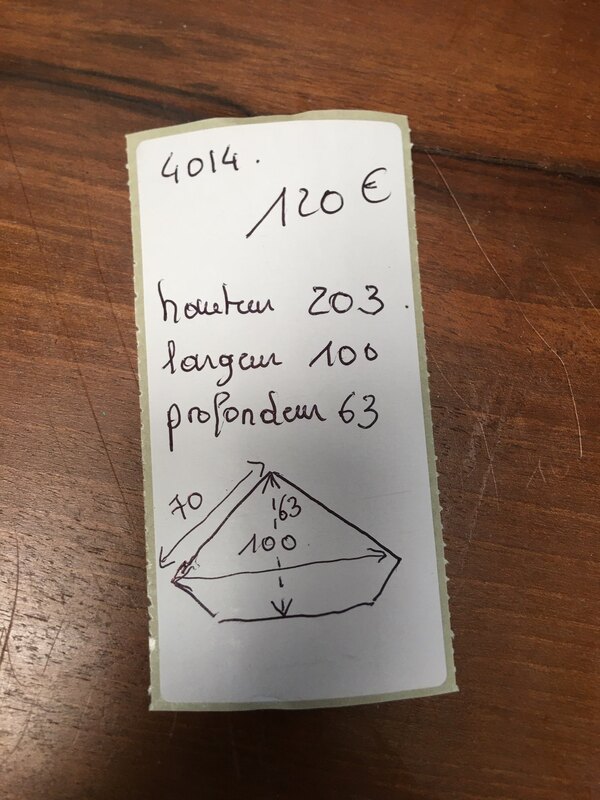 4014.
120 €
hauteur 203.
largeur 100
profondeur 63
70
63
100